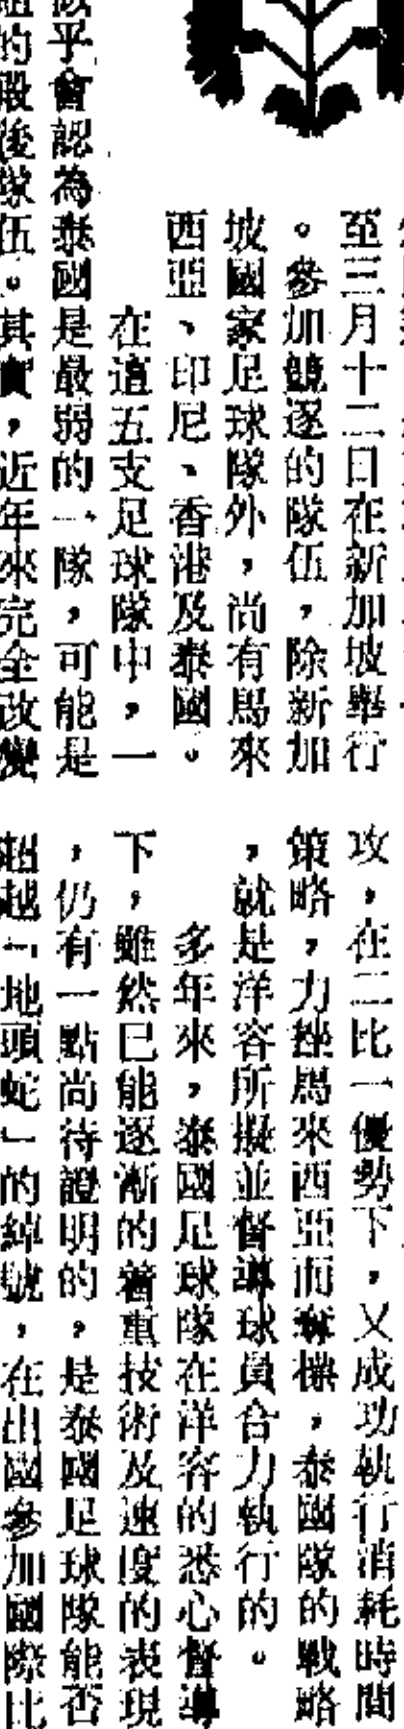 至三月十二日在新加坡舉行
。參加競逐的隊伍，除新加
坡國家足球隊外，尚有馬來
西亞、印尼、香港及泰國。
在這五支足球隊中，一
似乎會認為泰國是最弱的一隊，可能是
的殿後隊伍。其實，近年來完全改變
攻，在二比一優勢下，又成功執行消耗時間
策略，力挫馬來西亞而奪標，泰國隊的戰略
，就是洋容所擬並督導球員合力執行的。
多年來，泰國足球隊在洋容的悉心督導
下，雖然已能逐漸的着重技術及速度的表現
，仍有一點尚待證明的，是泰國足球隊能否
超越「地頭蛇」的綽號，在出國參加國際比